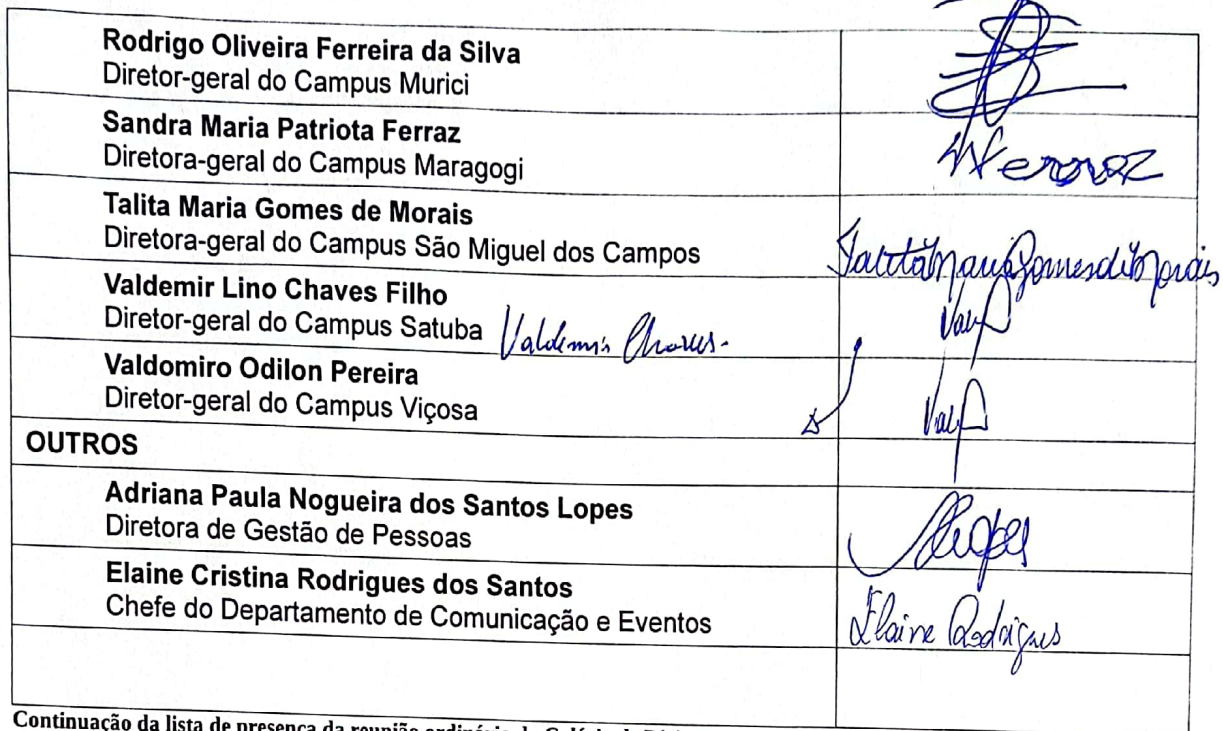 Rodrigo Oliveira Ferreira da Silva
Diretor-geral do Campus Murici
Sandra Maria Patriota Ferraz
Diretora-geral do Campus Maragogi
Ferraz
Talita Maria Gomes de Morais
Diretora-geral do Campus São Miguel dos Campos
Talita Maria Gomes de Morais
Valdemir Lino Chaves Filho
Diretor-geral do Campus Satuba Valdemir Chaves.
Valdomiro Odilon Pereira
Diretor-geral do Campus Viçosa
OUTROS
Adriana Paula Nogueira dos Santos Lopes
Diretora de Gestão de Pessoas
Elaine Cristina Rodrigues dos Santos
Chefe do Departamento de Comunicação e Eventos
Elaine Rodrigues
Continuação da lista de presença da reunião ordinária do Colégio de